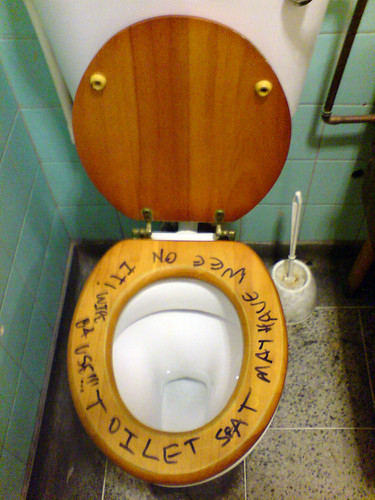 TOILET SEAT MAY HAVE WEE ON IT! WIPE B4 USE!!!...